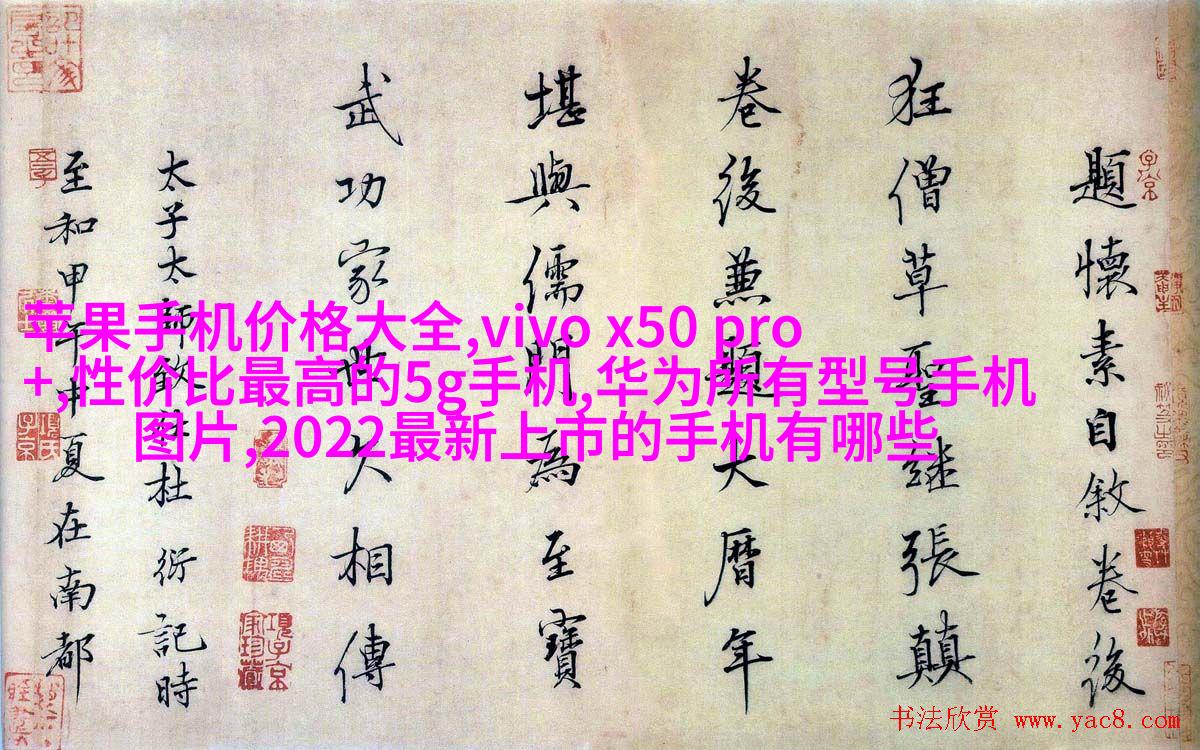 題懷素自敘卷後
狂僧草聖継張顛
卷後兼題大曆年
堪與儒門為至寶
武功家世久相傳
太子太師致仕杜衍記時
至和甲午中夏在南都
苹果手机价格大全,vivo x50 pro
+,性价比最高的5g手机,华为所有型号手机
图片,2022最新上市的手机有哪些
书法欣赏 www.yac8.com